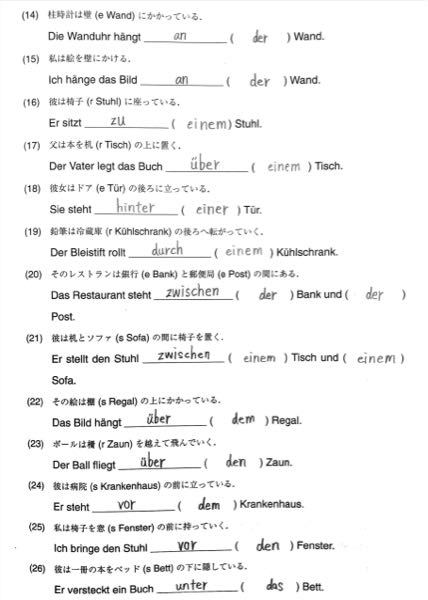 (14) 柱時計は壁 (e Wand) にかかっている.
Die Wanduhr hängt an ( der ) Wand.
(15) 私は絵を壁にかける.
Ich hänge das Bild an ( der ) Wand.
(16) 彼は椅子 (r Stuhl) に座っている.
Er sitzt zu ( einem ) Stuhl.
(17) 父は本を机 (r Tisch) の上に置く.
Der Vater legt das Buch über ( einem ) Tisch.
(18) 彼女はドア (e Tür) の後ろに立っている.
Sie steht hinter ( einer ) Tür.
(19) 鉛筆は冷蔵庫 (r Kühlschrank) の後ろへ転がっていく.
Der Bleistift rollt durch ( einem ) Kühlschrank.
(20) そのレストランは銀行 (e Bank) と郵便局 (e Post) の間にある.
Das Restaurant steht zwischen ( der ) Bank und ( der )
Post.
(21) 彼は机とソファ (s Sofa) の間に椅子を置く.
Er stellt den Stuhl zwischen ( einem ) Tisch und ( einem )
Sofa.
(22) その絵は棚 (s Regal) の上にかかっている.
Das Bild hängt über ( dem ) Regal.
(23) ボールは柵 (r Zaun) を越えて飛んでいく.
Der Ball fliegt über ( den ) Zaun.
(24) 彼は病院 (s Krankenhaus) の前に立っている.
Er steht vor ( dem ) Krankenhaus.
(25) 私は椅子を窓 (s Fenster) の前に持っていく.
Ich bringe den Stuhl vor ( den ) Fenster.
(26) 彼は一冊の本をベッド (s Bett) の下に隠している.
Er versteckt ein Buch unter ( das ) Bett.